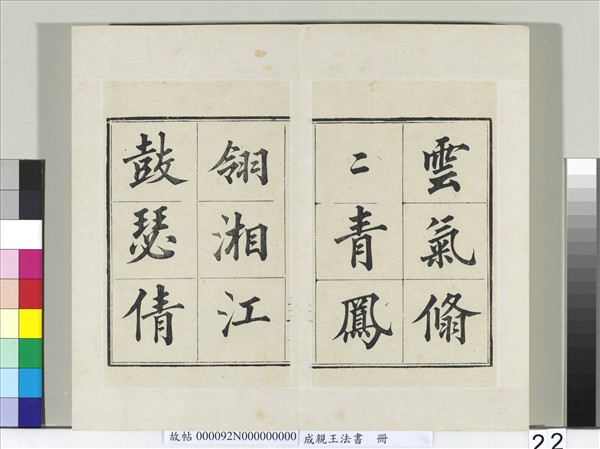 雲氣翛
二青鳳
翎湘江
鼓瑟倩
故帖 000092N000000000 成親王法書 冊
22